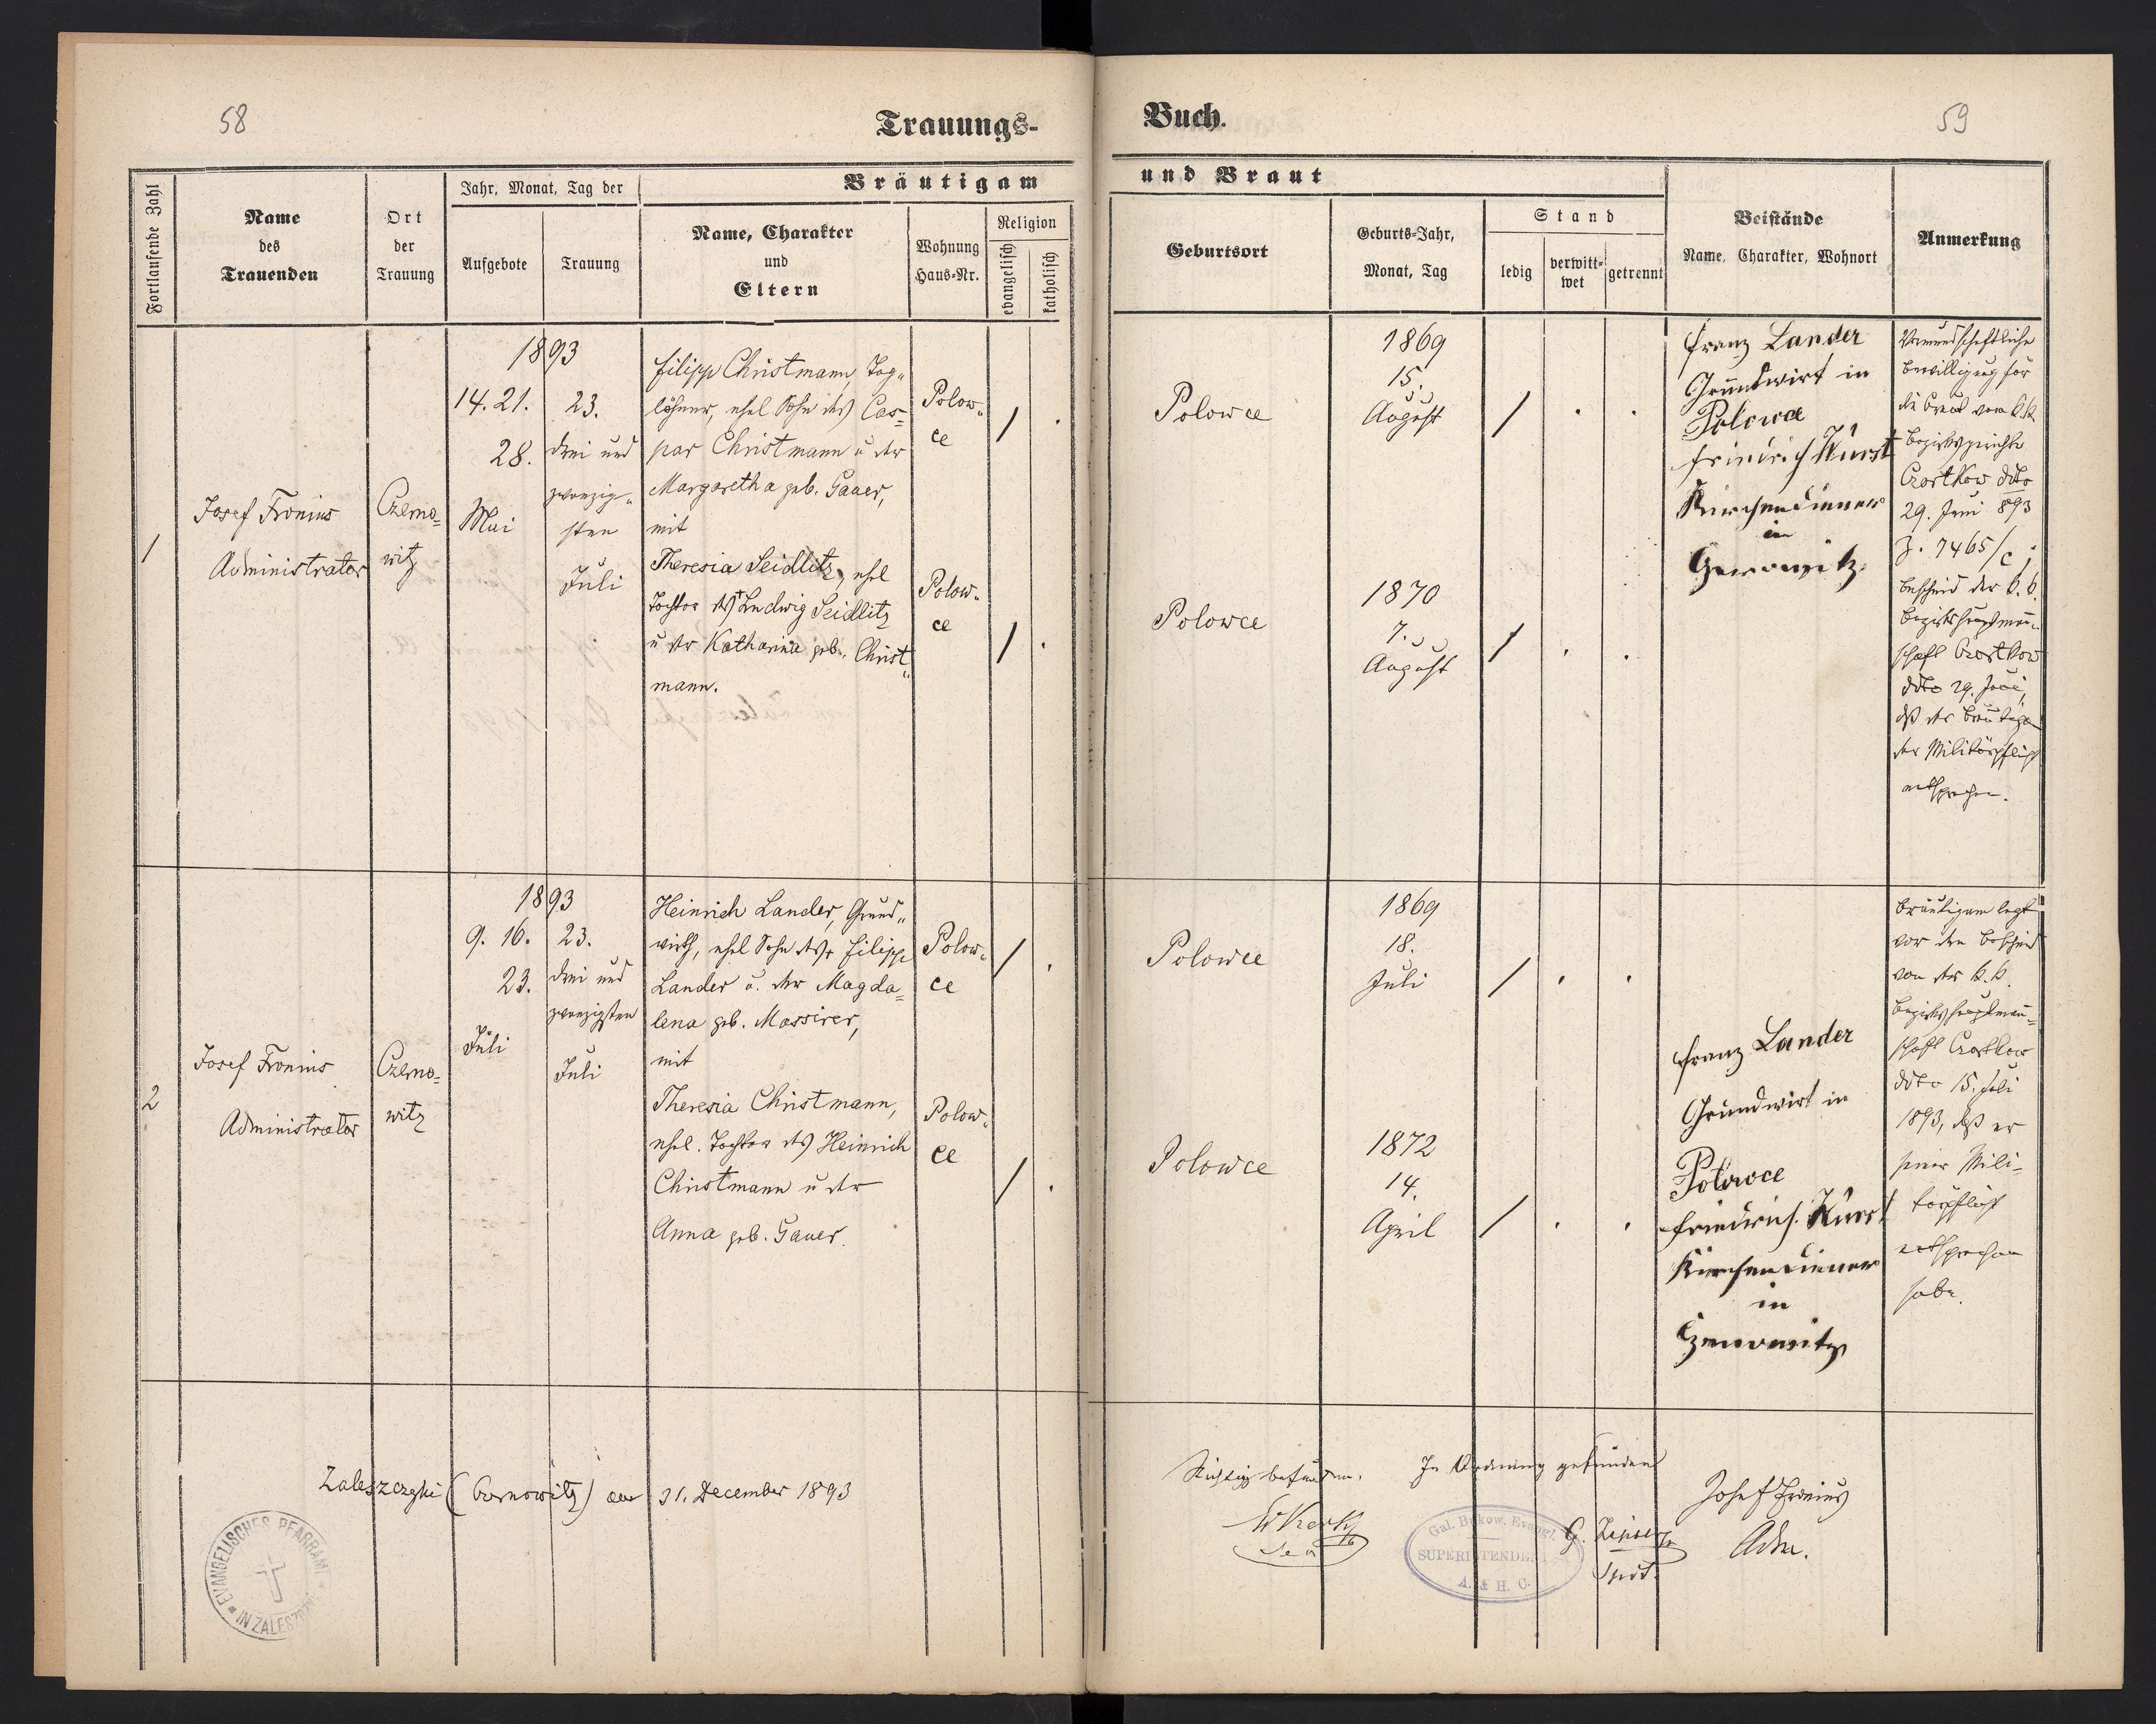 58
Trauungs-
Buch.
59
Fortlaufende Zahl
Name
des
Trauenden
Ort
der
Trauung
Jahr, Monat, Tag der
Aufgebote
Trauung
Bräutigam
Name, Charakter
und
Eltern
Wohnung
Haus-Nr.
Religion
evangelisch
katholisch
und Braut
Geburtsort
Geburts-Jahr,
Monat, Tag
Stand
ledig
verwitt-
wet
getrennt
Beistände
Name, Charakter, Wohnort
Anmerkung
1
Josef Fronius
Administrator
Czerno-
witz
1893
14. 21.
28.
Mai
23.
drei und
zwanzig-
sten
Juli
Filipp Christmann, Tag-
löhner, ehel Sohn des Cas-
par Christmann u der
Margaretha geb. Gauer,
mit
Theresia Seidlitz, ehel
Tochter des + Ludwig Seidlitz
u der Katharina geb. Christ-
mann.
Polow-
ce
Polow-
ce
Polowce
1869
15.
August
Polowce
1870
7.
August
Franz Lander
Grundwirt in
Polowce
Friedrich Kurst
Kirchendiener
in
Czernowitz
Vormundschaftliche
Bewilligung für
die Braut vom k.k.
Bezirksgerichte
Czortkow ddto
29. Juni 893
Z. 7465/c;
Bescheid der k. k.
Bezirkshauptmann-
schaft Czortkow
ddto 29. Juni,
daß der Bräutigam
der Militärpflicht
entsprochen.
2
Josef Fronius
Administrator
Czerno-
witz
1893
9. 16.
23.
Juli
23.
drei und
zwanzigsten
Juli
Heinrich Lander, Grund-
wirth, ehel Sohn des + Filipp
Lander u. der Magda-
lena geb. Massirer,
mit
Theresia Christmann,
ehel. Tochter des Heinrich
Christmann u der
Anna geb. Gauer.
Polow-
ce
Polow-
ce
Polowce
1869
18.
Juli
Polowce
1872
14.
April
Franz Lander
Grundwirt in
Polowce
Friedrich Kurst
Kirchendiener
in
Czernowitz
Bräutigam legt
vor den Bescheid
von der k. k.
Bezirkshauptmann-
schaft Czortkow
ddto 15. Juli
1893, daß er
seiner Mili-
tärpflicht
entsprochen
habe.
Zaleszczyki (Czernowitz) am 31. December 1893
EVANGELISCHES PFARRAMT
IN ZALESZCZYKI
Richtig befunden.
Sen
In Ordnung gefunden
Gal. Bukow. Evangl.
SUPERINTENDENT
A. & H. C.
Spdt.
Josef Fronius
Adm.